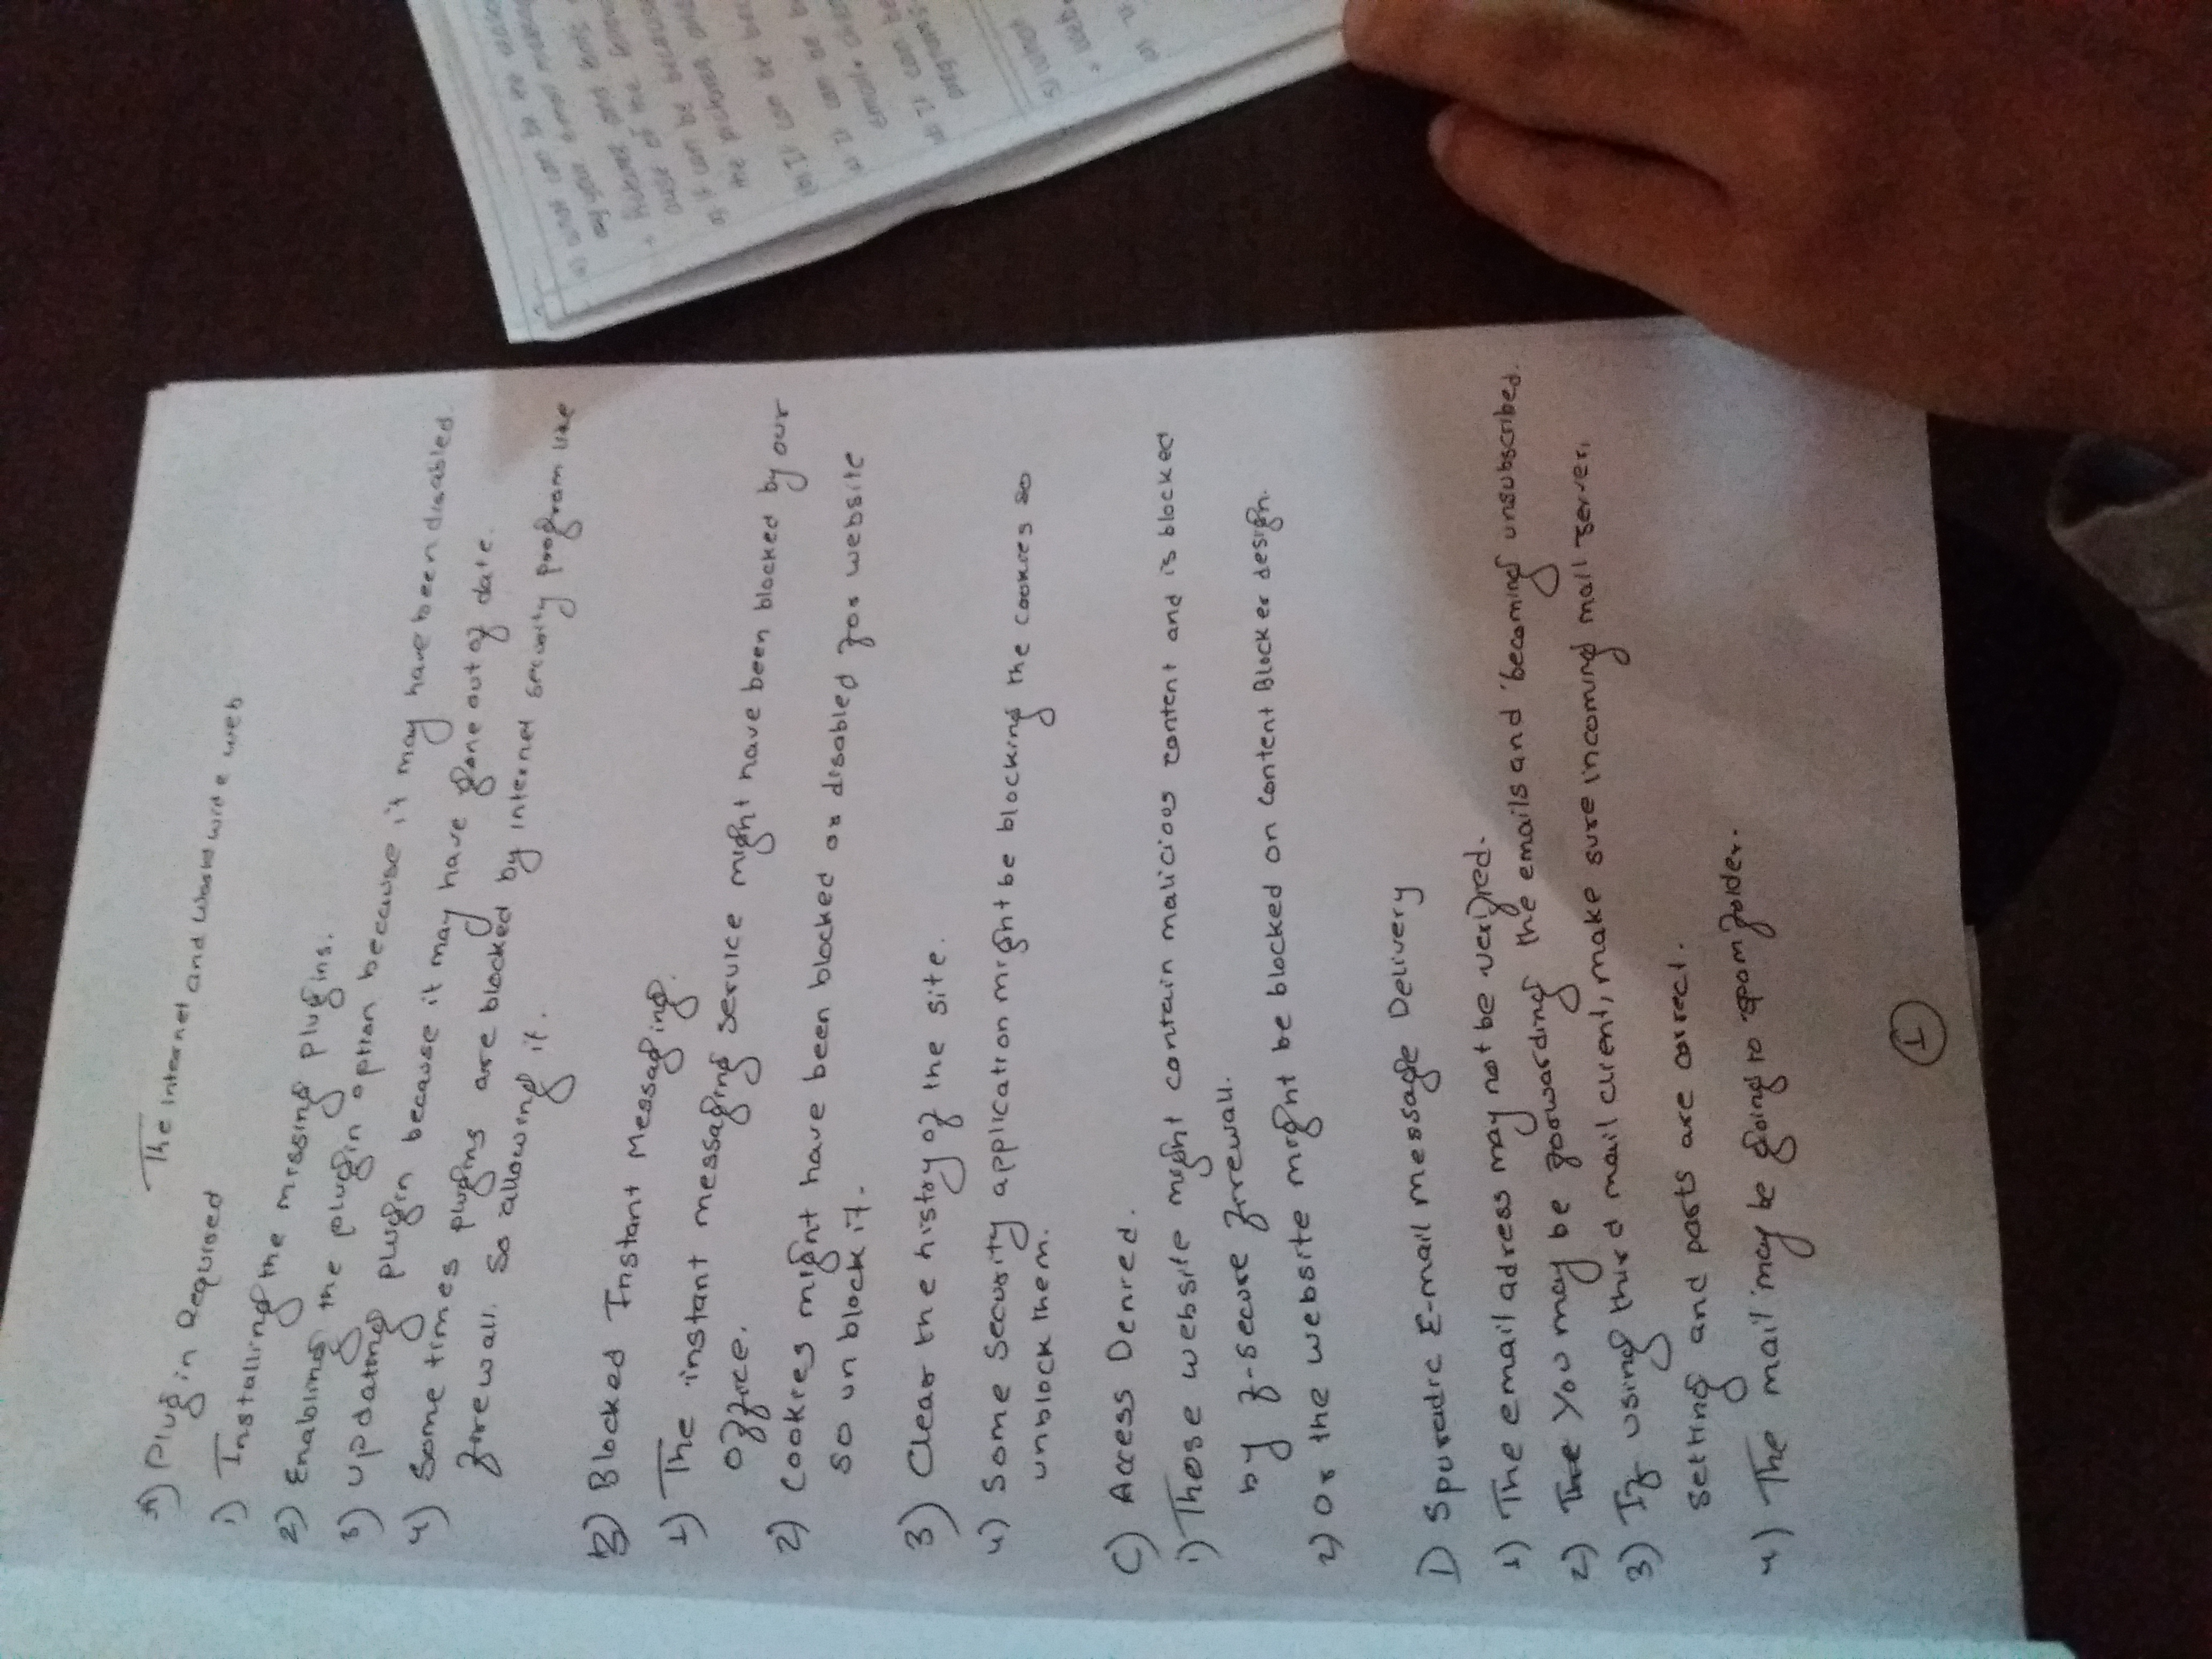 The internet and World wide web
A) Plugin Required
1) Installing the missing plugins.
2) Enabling the plugin option because it may have been disabled.
3) updating plugin because it may have gone out of date.
4) Some times plugins are blocked by internet security program like
firewall. So allowing it.
B) Blocked Instant Messaging.
1) The instant messaging service might have been blocked by our
office.
2) Cookies might have been blocked or disabled for website
so un block it.
3) Clear the histroy of the site.
4) Some Security application might be blocking the cookies so
unblock them.
C) Access Denied.
1) Those website might contain malicious content and is blocked
by f-secure firewall.
2) Or the website might be blocked on Content Blocker design.
D Sporadic E-mail message Delivery
1) The email adress may not be verified.
2) The You may be forwarding the emails and becoming unsubscribed.
3) If using third mail client, make sure incoming mail server,
setting and ports are correct.
4) The mail may be going to spam folder.
1
what can be the reason
pictures and fonts
it can be because
the pictures and
It can be
It can be
email
It can be
programs
5) What
web